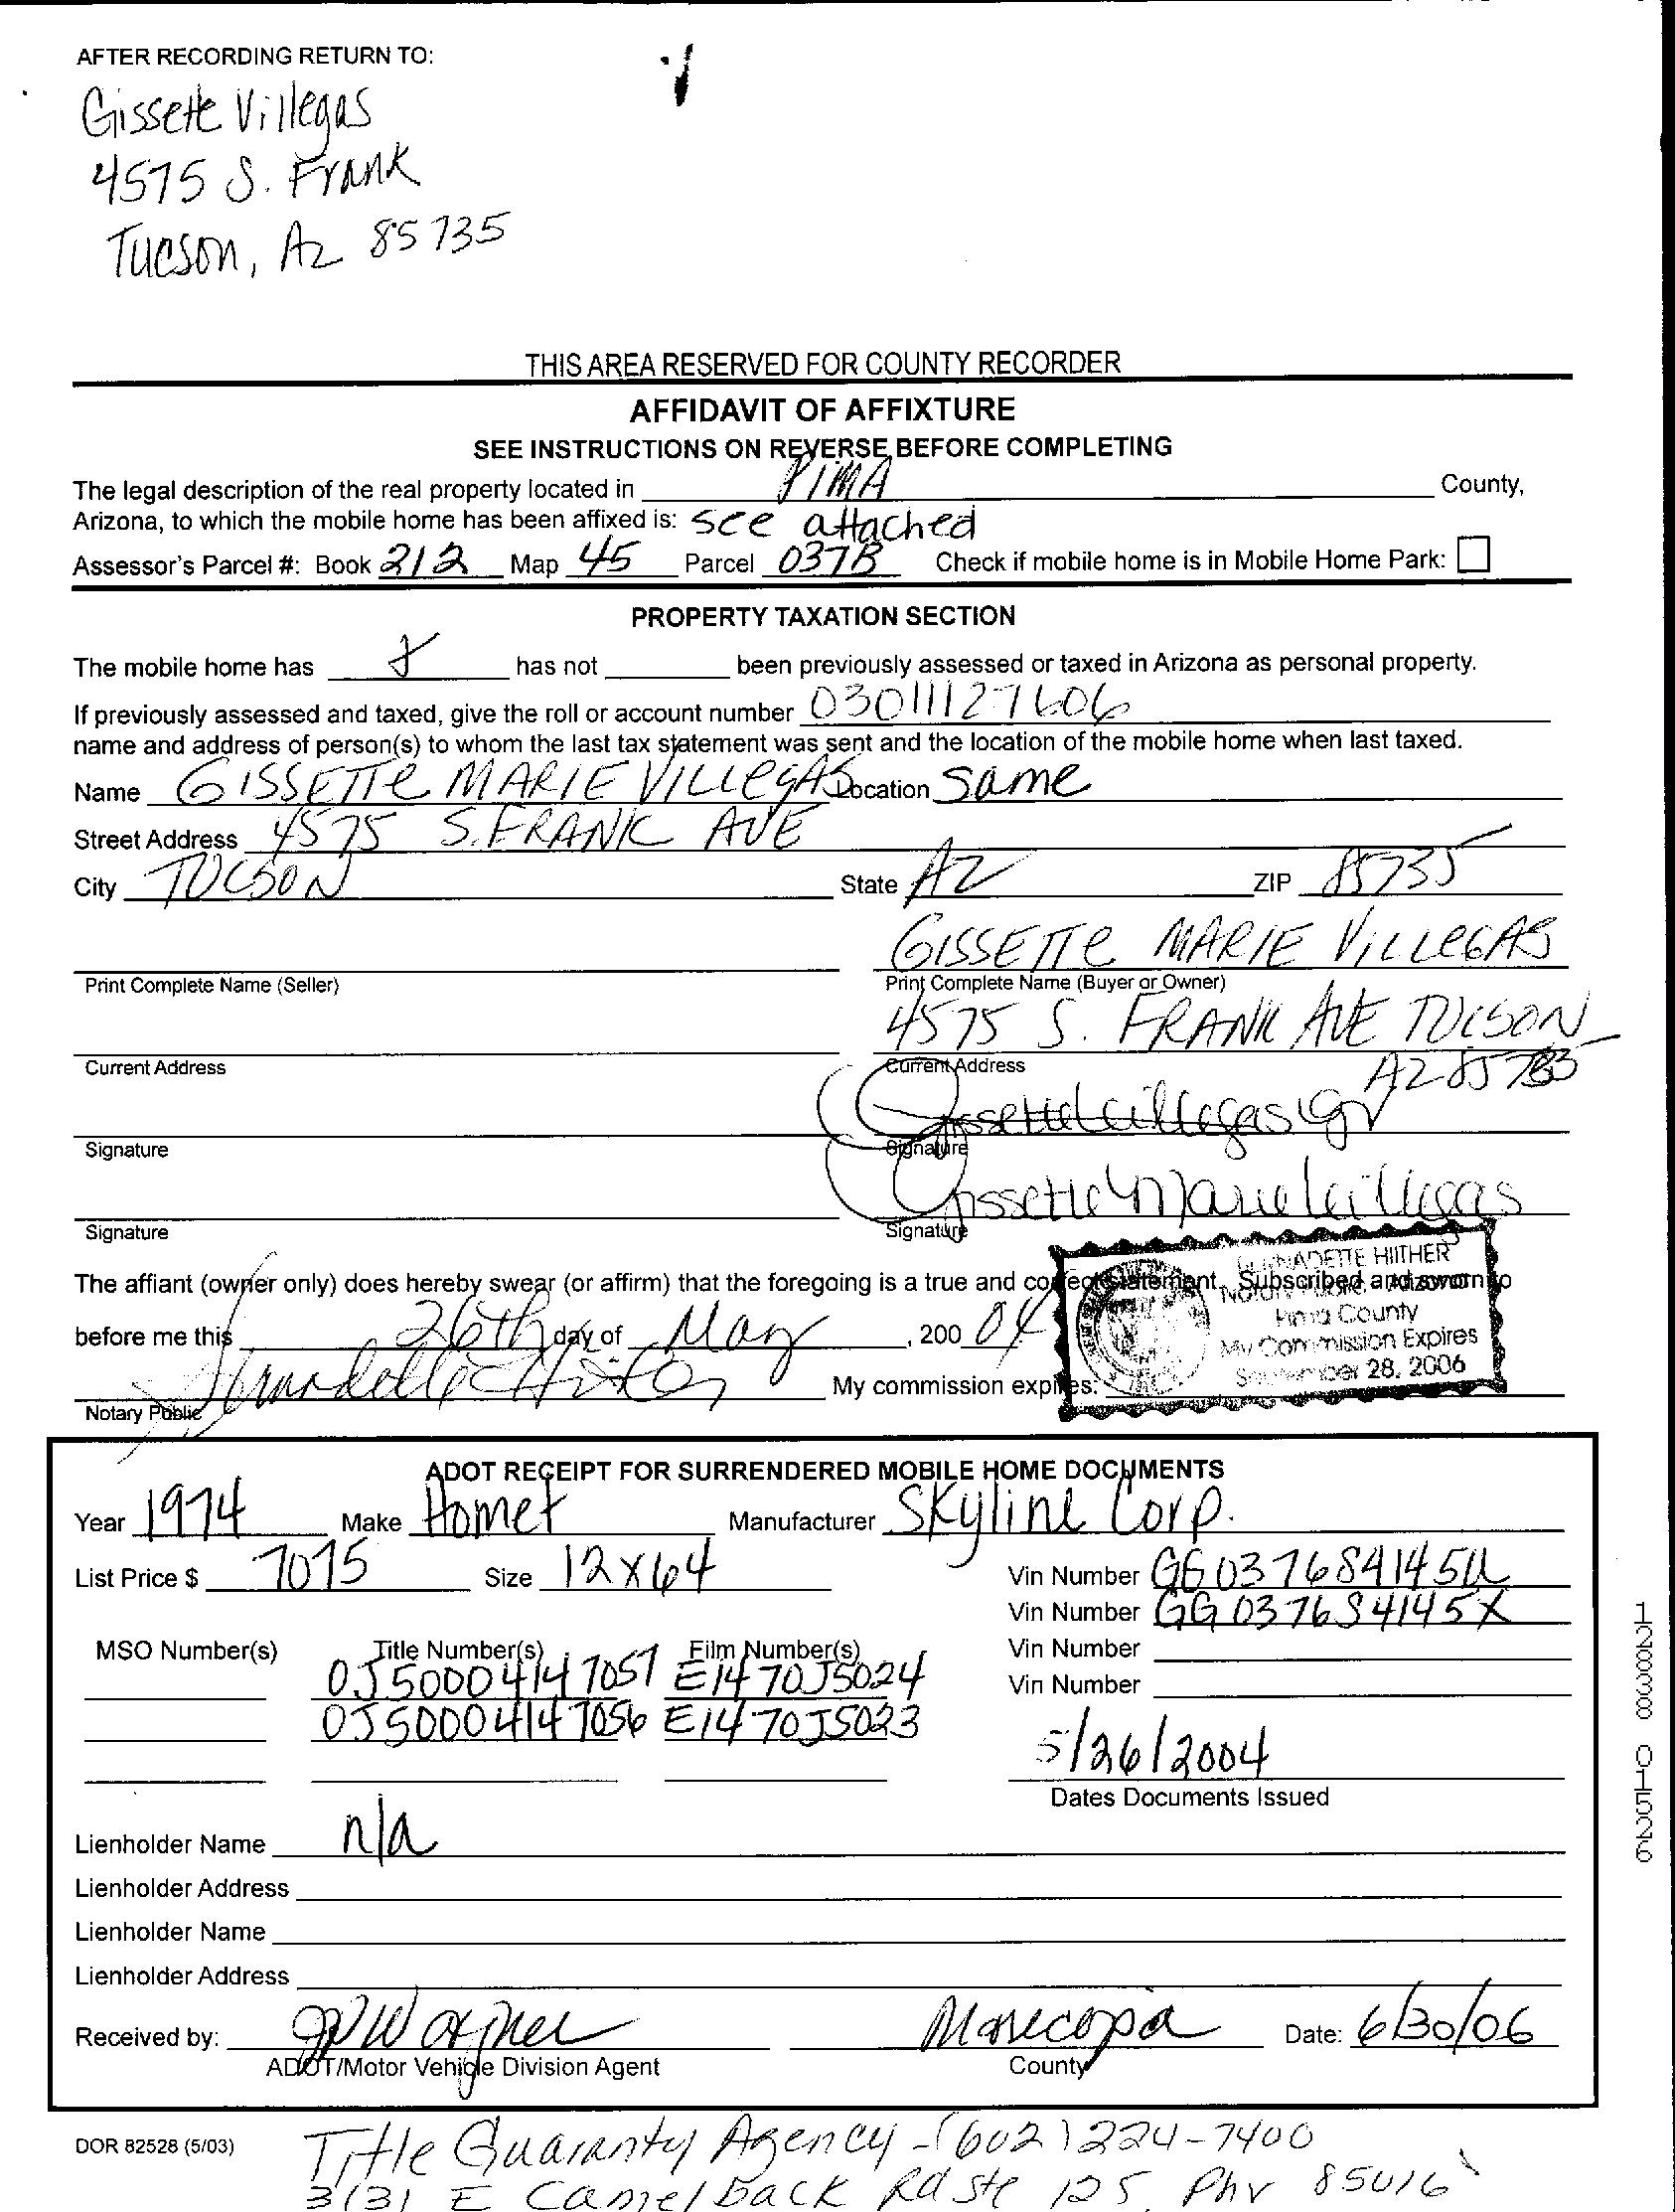 AFTER RECORDING RETURN TO:
Gissette Villegas
4575 S. Frank
Tucson, Az 85735
THIS AREA RESERVED FOR COUNTY RECORDER
AFFIDAVIT OF AFFIXTURE
SEE INSTRUCTIONS ON REVERSE BEFORE COMPLETING
The legal description of the real property located in PIMA County,
Arizona, to which the mobile home has been affixed is: see attached
Assessor's Parcel #: Book 212 Map 45 Parcel 037B Check if mobile home is in Mobile Home Park:
PROPERTY TAXATION SECTION
The mobile home has has not been previously assessed or taxed in Arizona as personal property.
If previously assessed and taxed, give the roll or account number 03011127606
name and address of person(s) to whom the last tax statement was sent and the location of the mobile home when last taxed.
Name GISSETTe MARIE VILLeGAS Location Same
Street Address 4575 S. FRANK AVE
City TUCSON State AZ ZIP 85735
GISSETTe MARIE VILLeGAS
Print Complete Name (Seller) Print Complete Name (Buyer or Owner)
4575 S. FRANK AVE TUCSON
Current Address Current Address AZ 85735
Gissette Villegas GV
Signature Signature
Gissette Marie Villegas
Signature Signature
The affiant (owner only) does hereby swear (or affirm) that the foregoing is a true and correct statement. Subscribed and sworn to
before me this 26th day of May, 200 04
My commission expires:
Notary Public
BERNADETTE HIITHER
Notary Public, Arizona
Pima County
My Commission Expires
September 28, 2006
ADOT RECEIPT FOR SURRENDERED MOBILE HOME DOCUMENTS
Year 1974 Make Homet Manufacturer Skyline Corp.
List Price $ 7075 Size 12x64 Vin Number GG037684145U
Vin Number GG037684145X
MSO Number(s) Title Number(s) Film Number(s) Vin Number
0J50004147057 E1470J5024 Vin Number
0J50004147056 E1470J5023
5/26/2004
Dates Documents Issued
Lienholder Name n/a
Lienholder Address
Lienholder Name
Lienholder Address
Received by: Wagner Maricopa Date: 6/30/06
ADOT/Motor Vehicle Division Agent County
DOR 82528 (5/03)
Title Guaranty Agency - (602) 224-7400
3131 E Camelback Rd Ste 125, Phx 85016
12838 01526